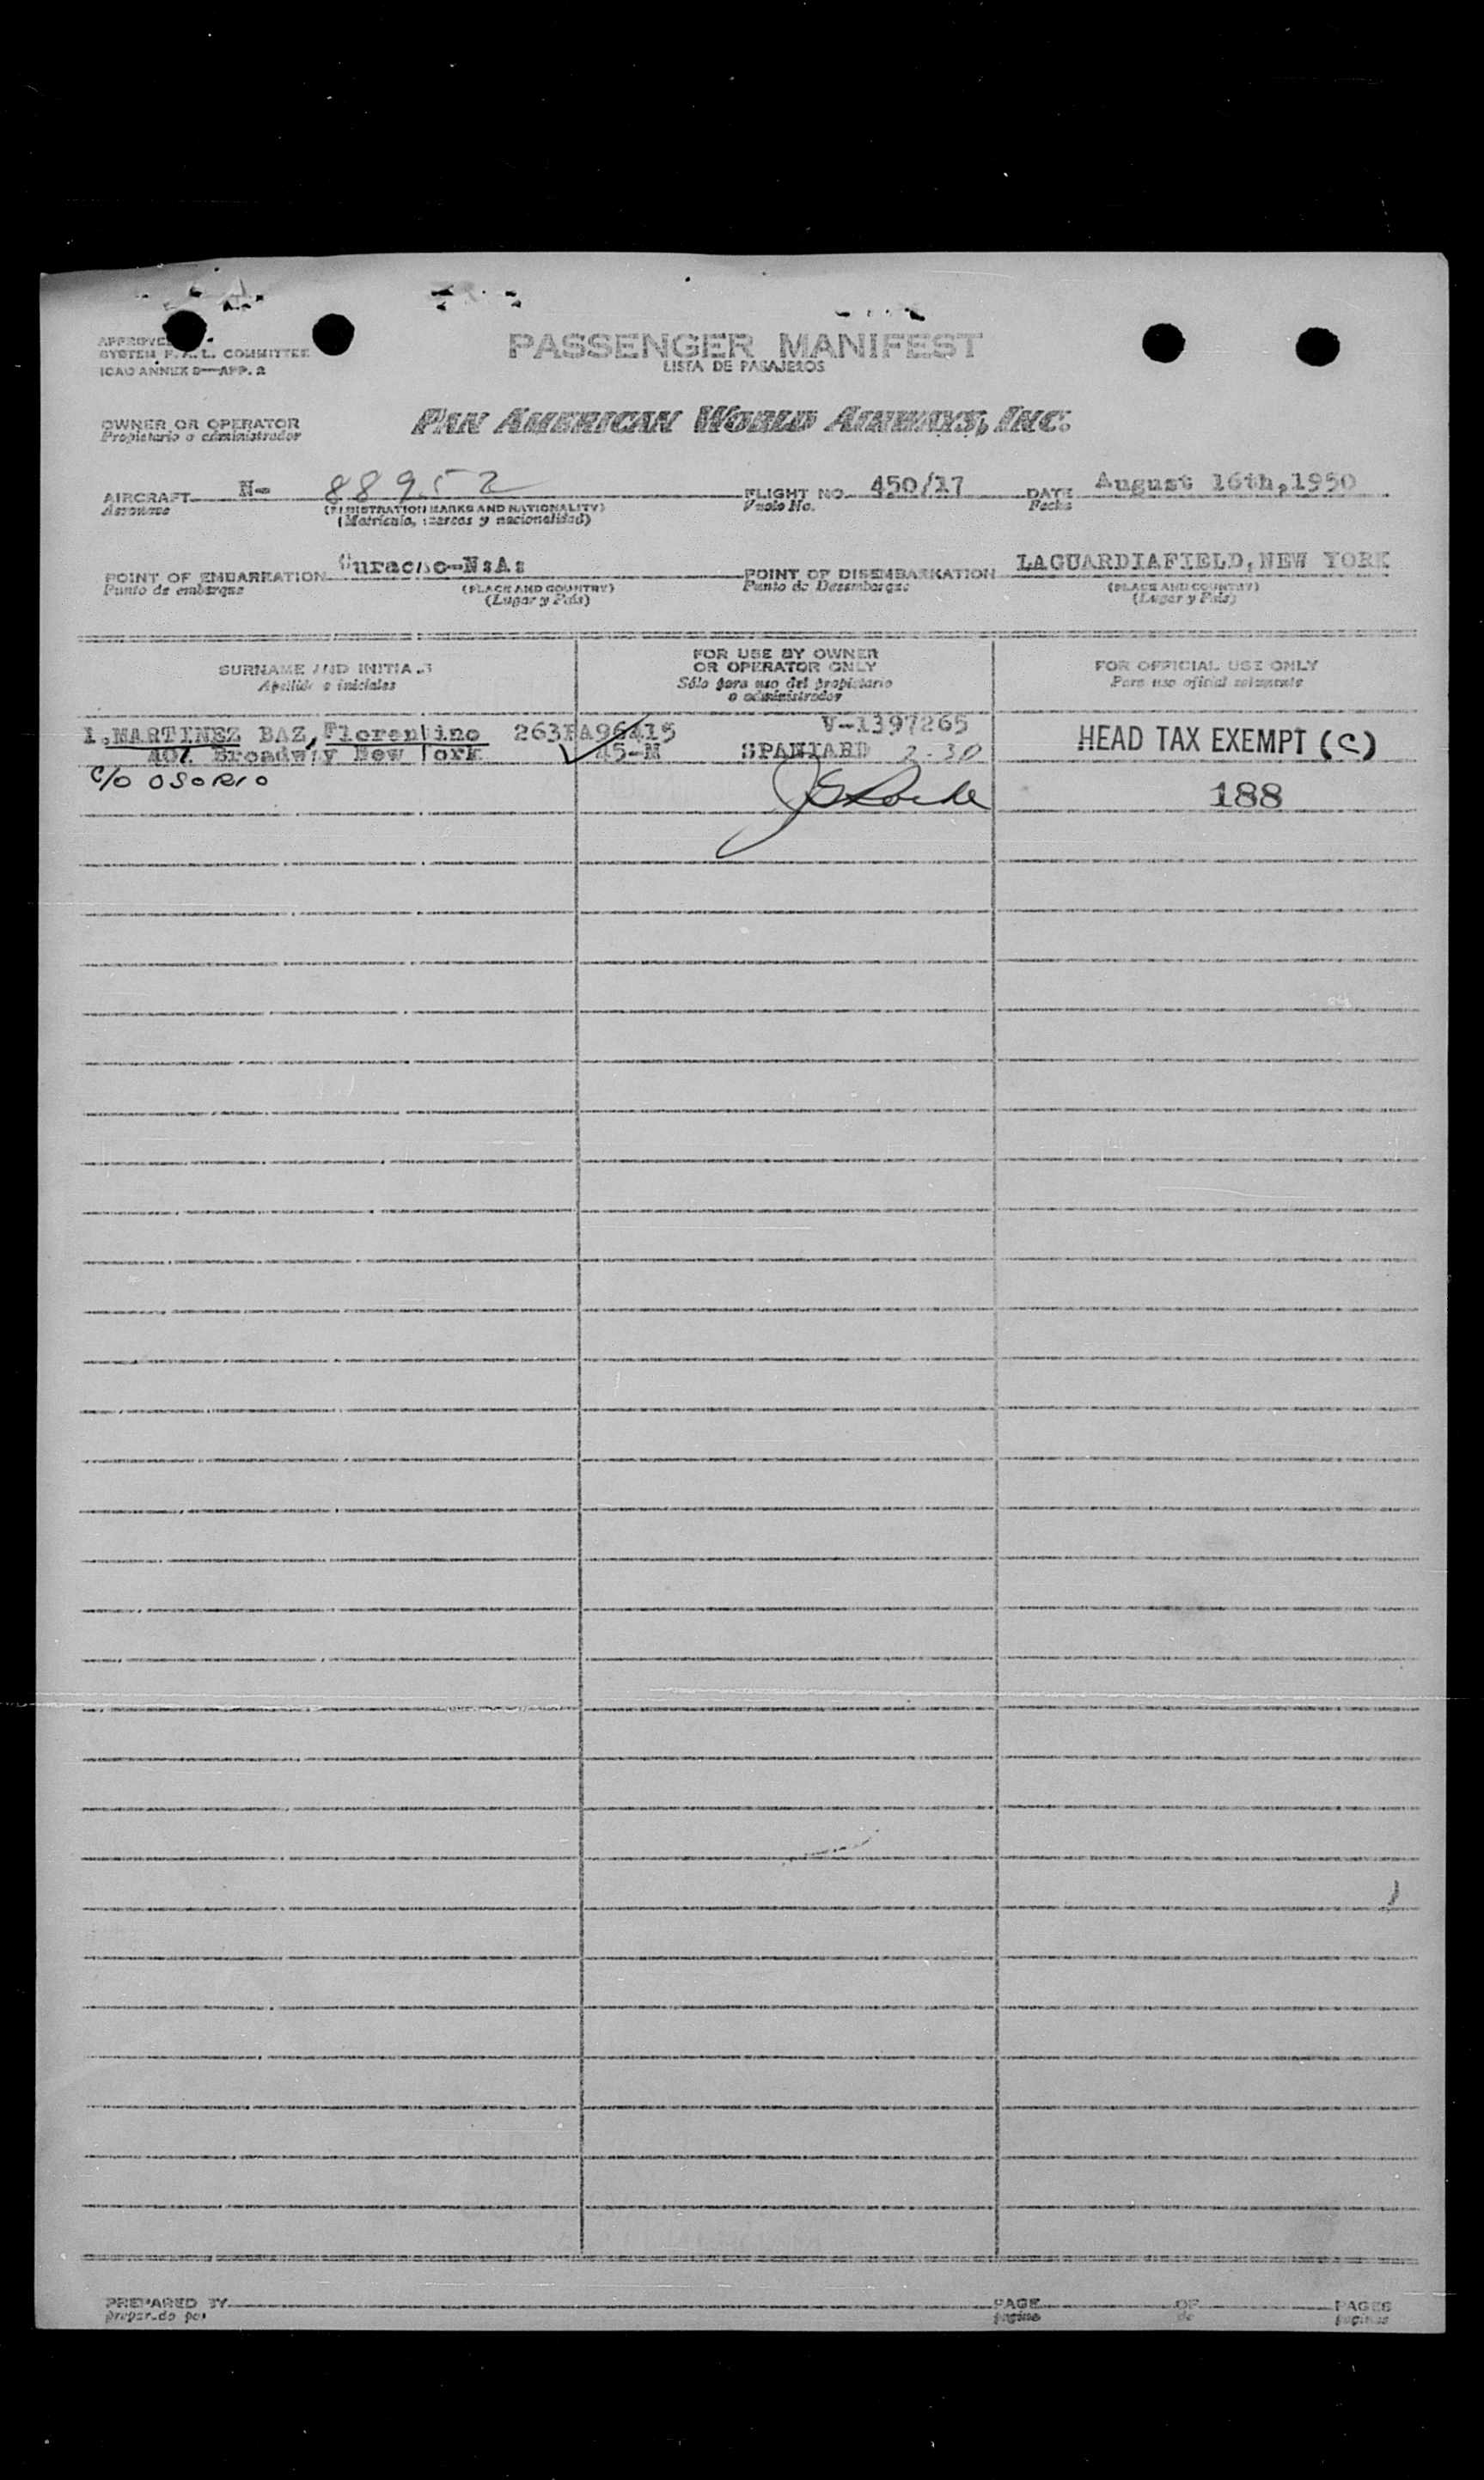 PASSENGER MANIFEST
LISTA DE PASAJEROS
APPROVED
SYSTEM F.A.L. COMMITTEE
ICAO ANNEX 9—APP. 2
OWNER OR OPERATOR
Propietario o administrador
PAN AMERICAN WORLD AIRWAYS, INC.
AIRCRAFT N- 88952 FLIGHT NO. 450/17 DATE August 16th,1950
Aeronave (REGISTRATION MARKS AND NATIONALITY) Vuelo No. Fecha
(Matrícula, marcas y nacionalidad)
POINT OF EMBARKATION Curacao-NsAs POINT OF DISEMBARKATION LAGUARDIAFIELD, NEW YORK
Punto de embarque (PLACE AND COUNTRY) Punto de Desembarque (PLACE AND COUNTRY)
(Lugar y País) (Lugar y País)
SURNAME AND INITIALS
Apellido e iniciales
FOR USE BY OWNER
OR OPERATOR ONLY
Sólo para uso del propietario
o administrador
FOR OFFICIAL USE ONLY
Para uso oficial solamente
1.MARTINEZ BAZ, Florentino 263 V-1397265 HEAD TAX EXEMPT (C)
Broadway New York 45-M SPANIARD 2-30
C/O OSORIO 188
PREPARED BY PAGE OF PAGES
preparado por página de páginas